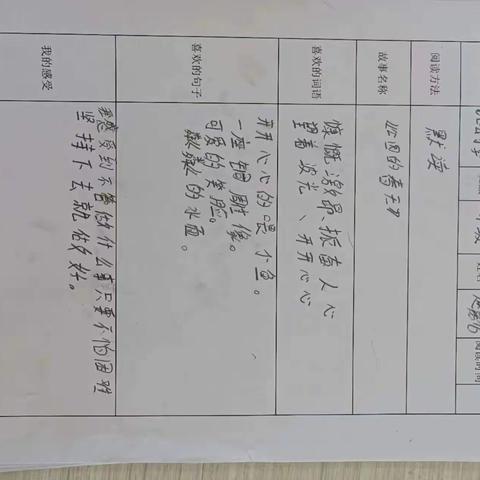 阅读时间
阅读方法
默读
故事名称
公园的春天
喜欢的词语
慷慨激昂 振奋人心
望着波光、开开心心
喜欢的句子
开开心心的喂小鱼。
一座铜雕像。
可爱的笑脸。
粼粼的水面。
我的感受
我感受到不管做什么事只要不怕困难
坚持下去就做好。